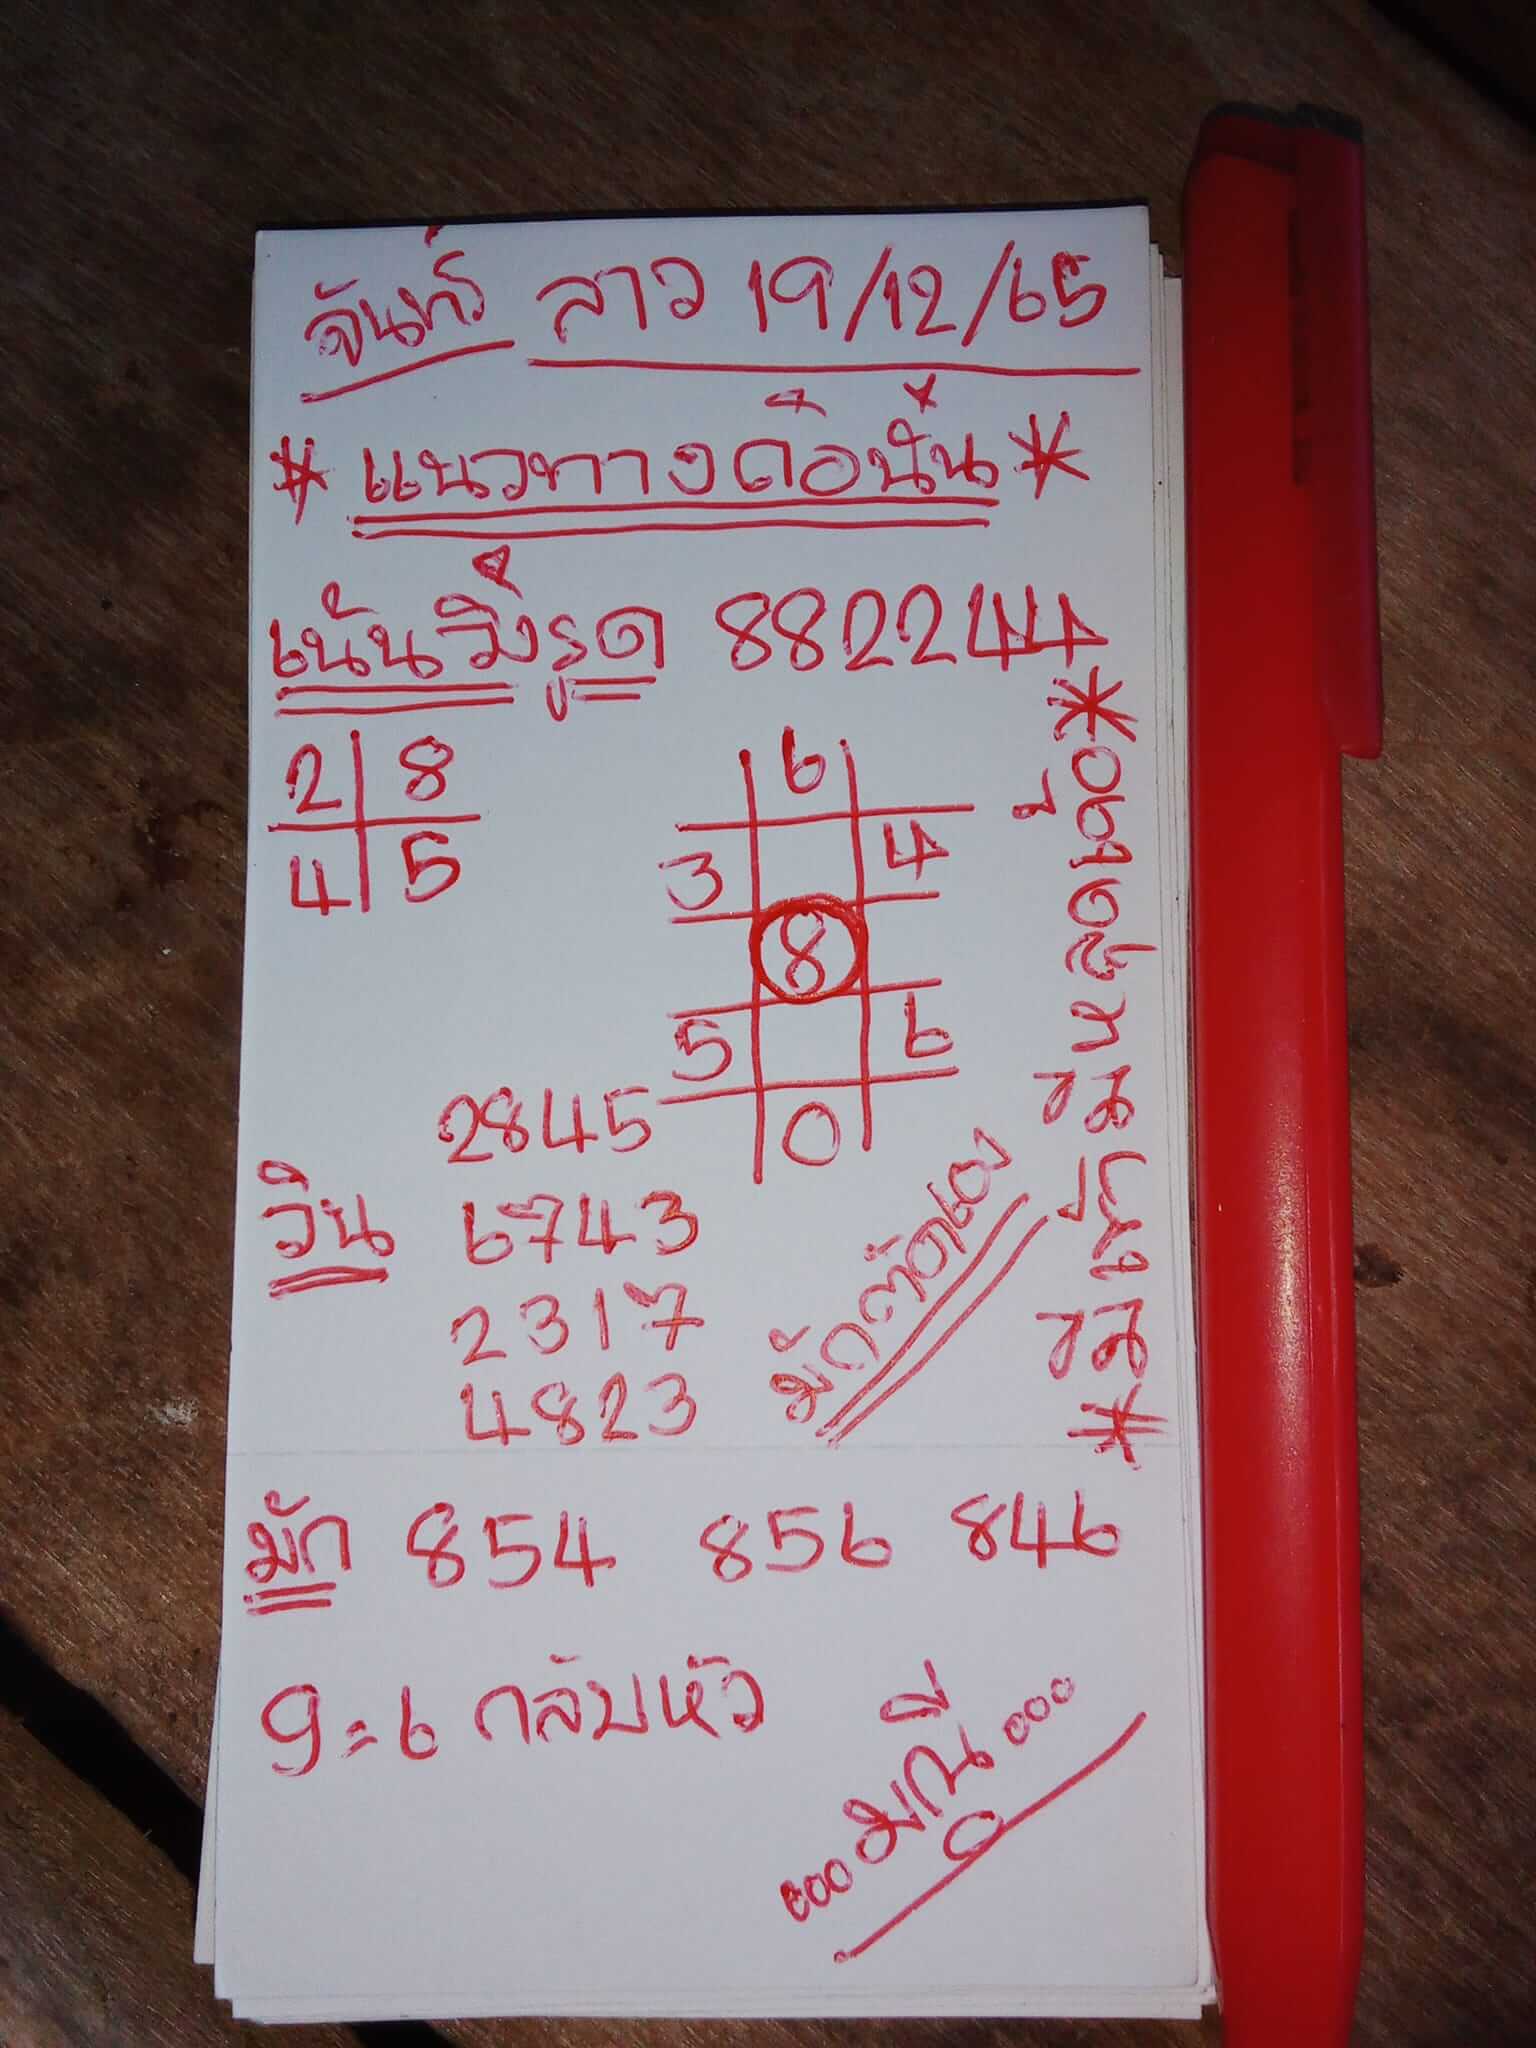 จันทร์ ลาว 19/12/65
* แนวทางคือนั้น *
เน้น วิ่งรูด 882244
2 8
4 5
6
3 4
8
5 6
0
2845
วิน 6743
2317
4823
มัก ตัดเอง
มัก 854 856 846
9=6 กลับหัว
...มณี...